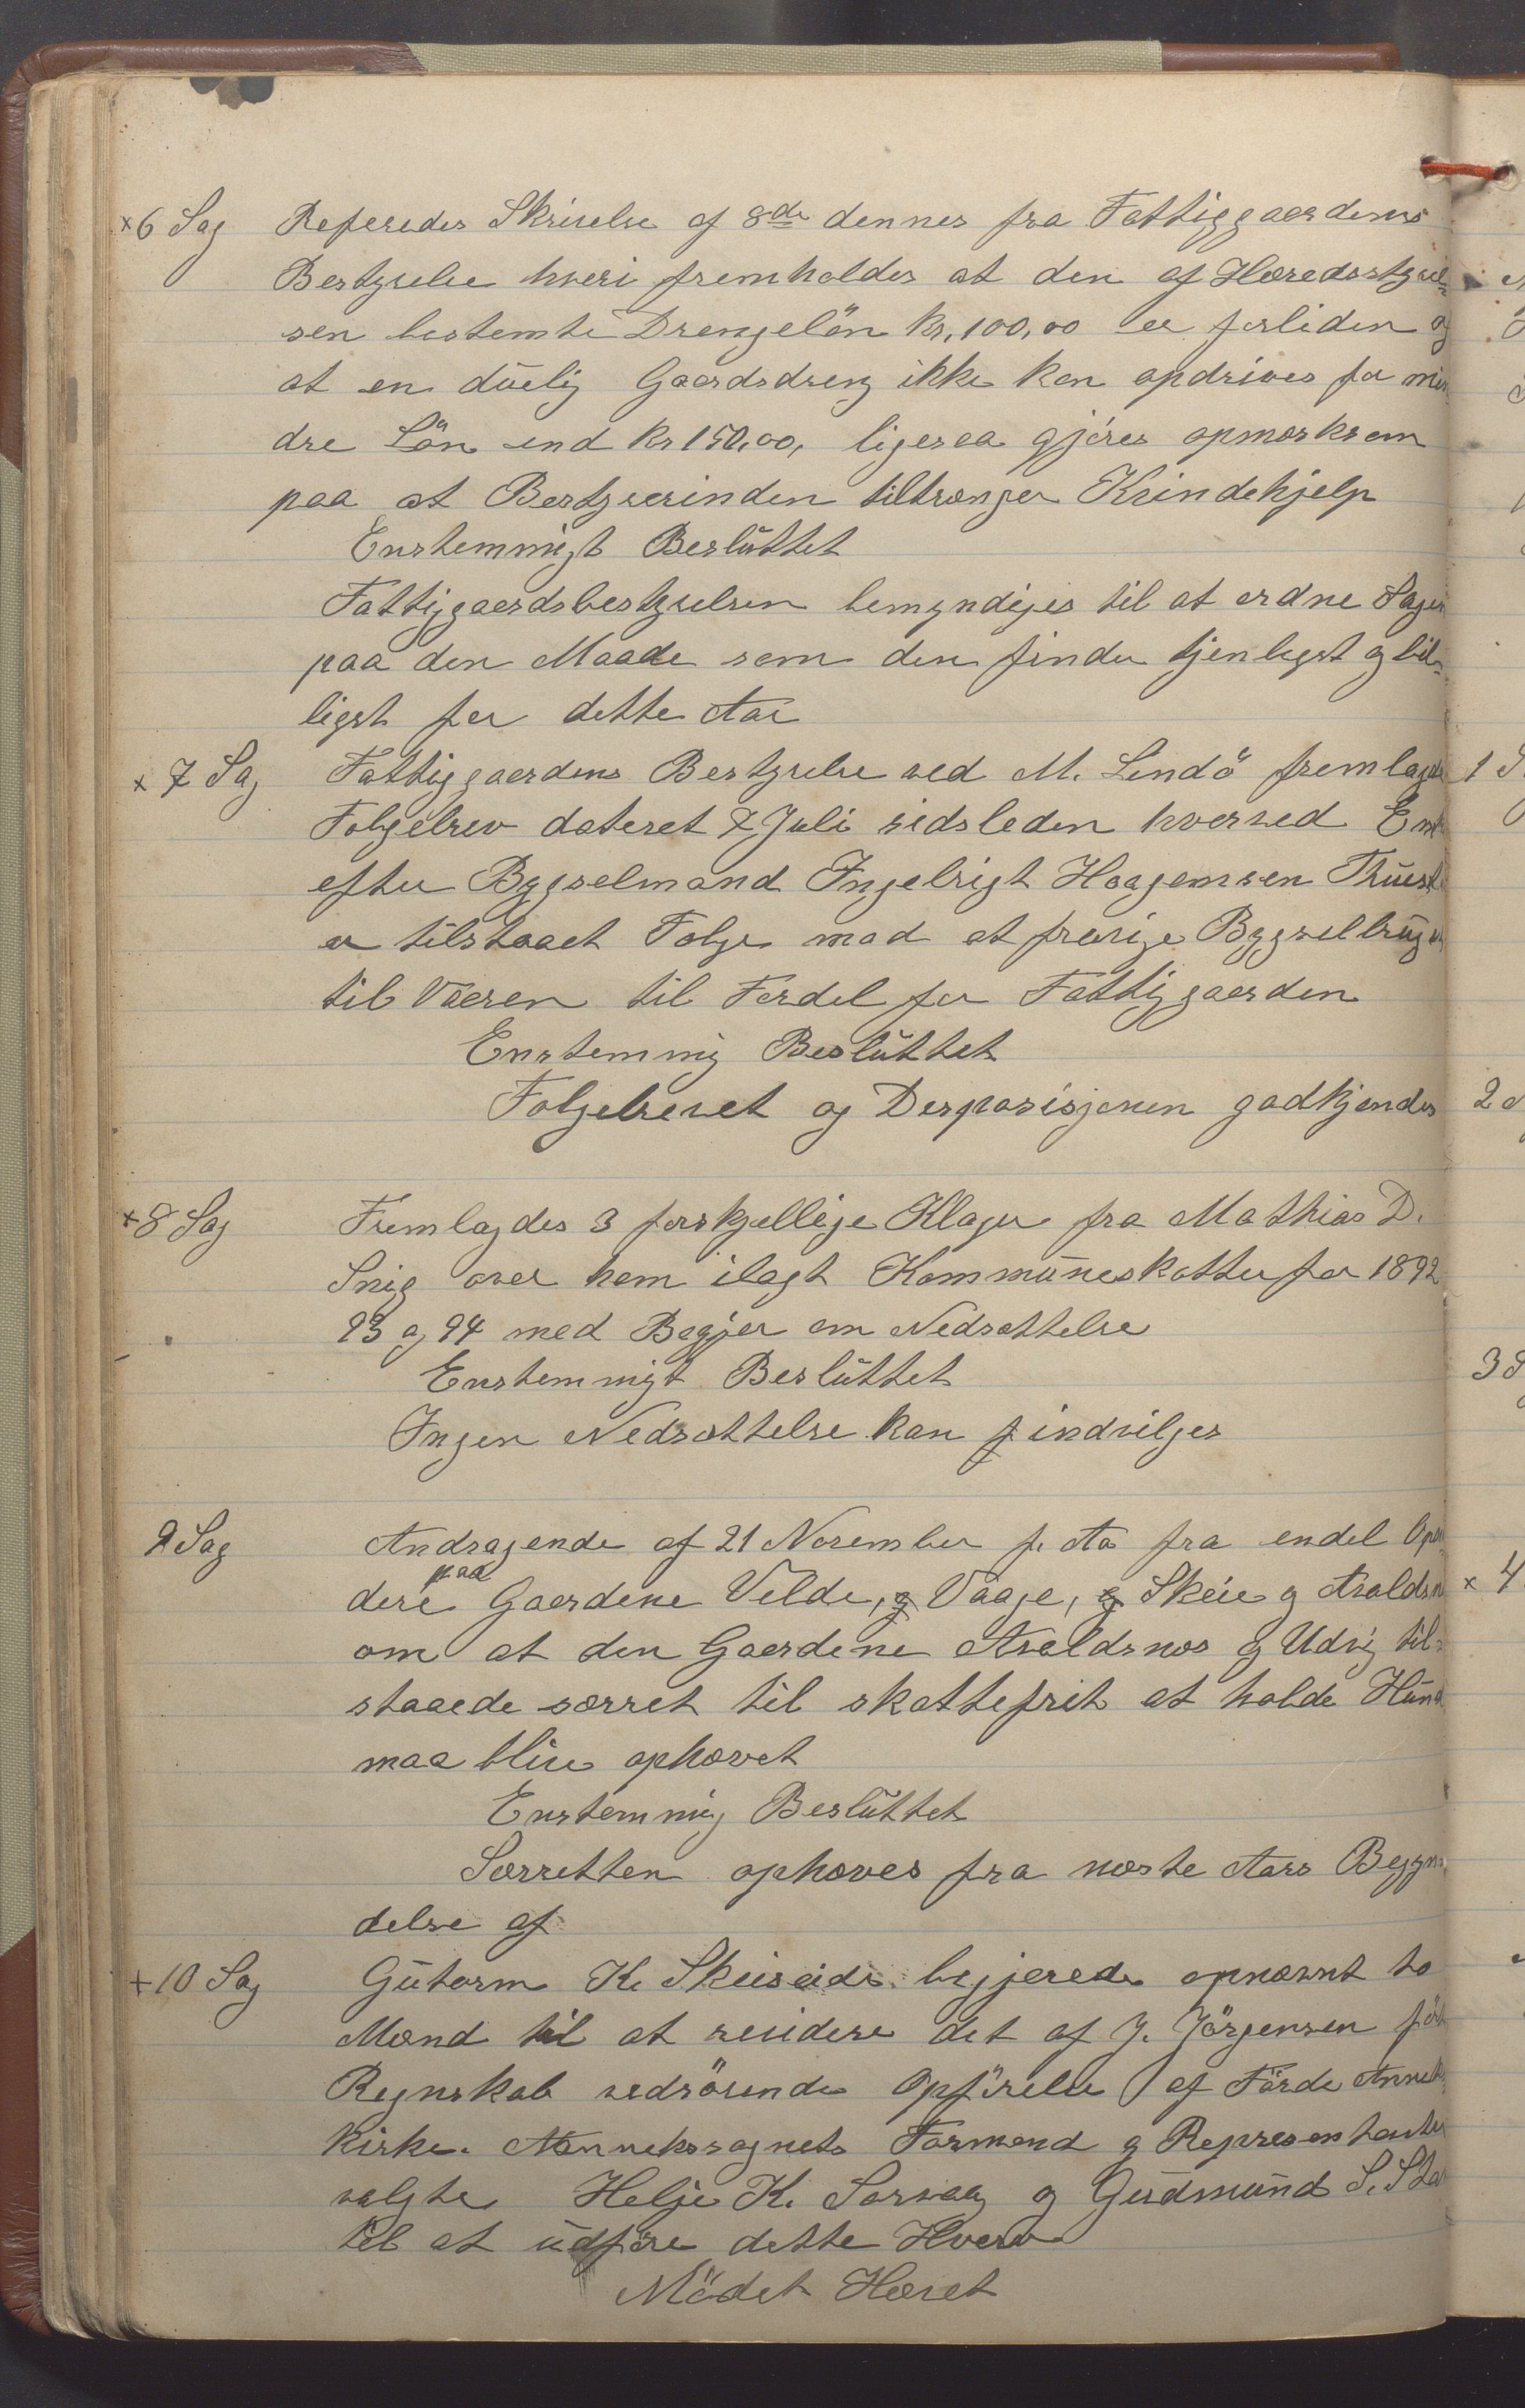 ×6 Sag Refereredes Skrivelse af 8de dennes fra Fattiggaardens
Bestyrelse hvori fremholdes at den af Heredsstyrel=
sen bestemte Drengelön kr. 100,00 er forliden og
at en duelig Gaardsdreng ikke kan opdrives for min
dre Lön end kr 150,00, ligesaa gjøres opmærksom
paa at Bestyrerinden tiltrænger Kvindehjelp
Enstemmigt Besluttet
Fattiggaardsbestyrelsen bemyndiges til at ordne Sagen
paa den Maade som den finder tjenligst og bil=
ligst for dette Aar
× 7 Sag Fattiggaardens Bestyrelse ved M. Lindö fremlagde
Folgebrev dateret 7 Juli sidsleden hvorved Enke
efter Bygselmand Ingebrigt Haagensen
er tilstaaet Folge mod at fravige Bygselbruget
til Våeren til Fordel for Fattiggaarden
Enstemmig Besluttet
Folgebrevet og Desposisjonen godkjendes
×8 Sag Fremlagdes 3 forskjellige Klager fra Mathias D.
Snig over ham ilagt Kommuneskatter for 1892
93 og 94 med Begjær om Nedsættelse
Enstemmigt Besluttet
Ingen Nedsættelse kan indvilges
9 Sag Andragende af 21 November f. Aa fra endel Opsi
paa
dere Gaardene Velde, og Vaage, og Skeie og Avaldsn
om at den Gaardene Avaldsnæs og Udvig til=
staaede særret til skattefrit at holde Hund
maa blive ophævet
Enstemmig Besluttet
Særretten ophæves fra næste Aars Begyn=
delse af
+10 Sag Gutorm K. Skeiseide begjærede opnævnt to
Mænd til at revidere det af J. Jörgensen förte
Regnskab vedrörende Opförelse af Förde Anneks
kirke. Annekssognets Formænd og Repræsentanter
valgte Helje K. Sørvaag og Gudmund S.
til at udföre dette Hverv
Mödet Hævet